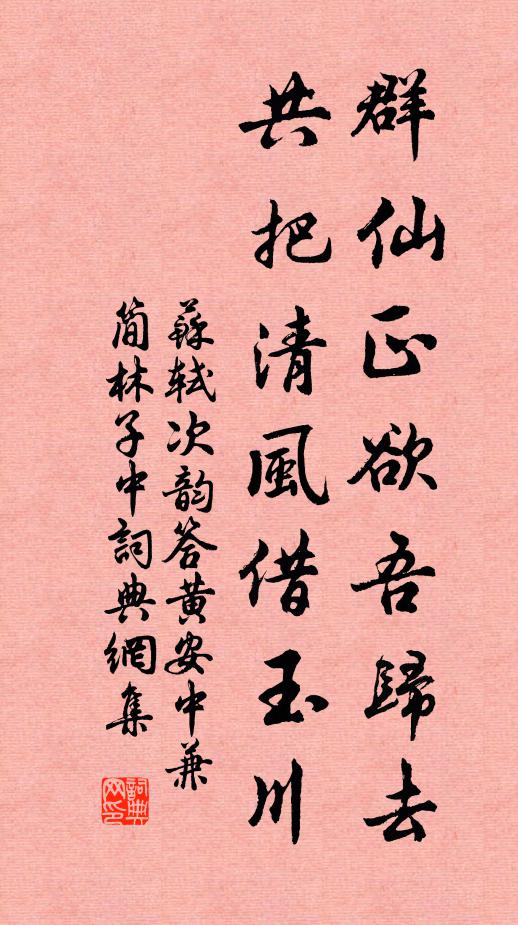 群仙正欲吾歸去
共把清風借玉川
蘇軾次韵答黃安中兼
簡林子中詞典網集
詞典
网印